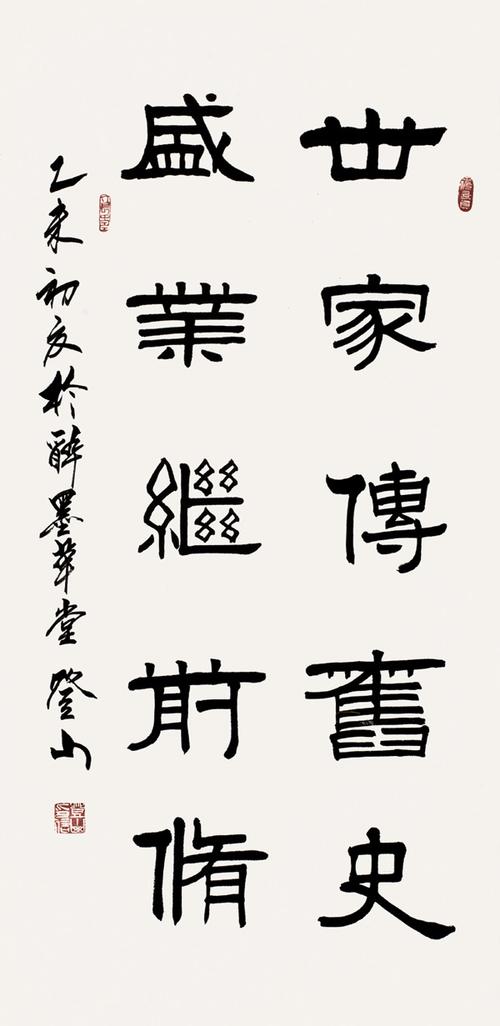 世家傳舊史
盛業繼前脩
乙未初夏於醉墨草堂 登山